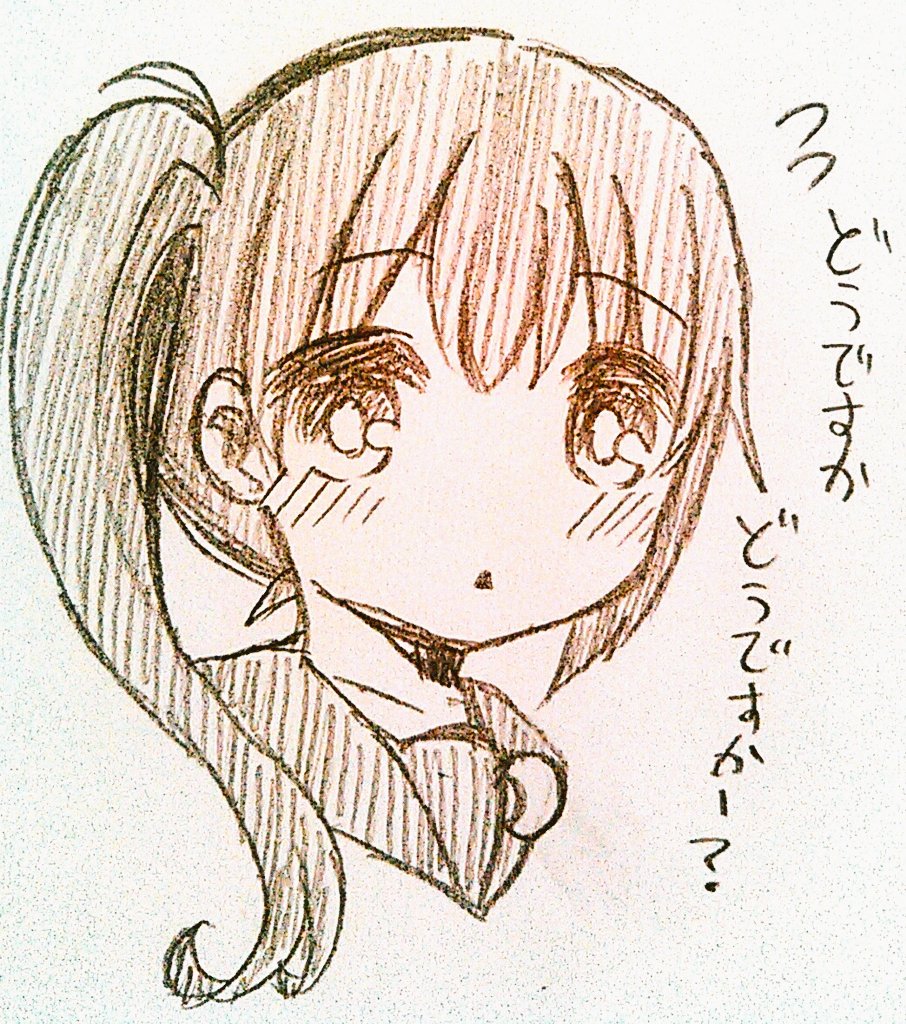 つつ
どうですか
どうですかー?